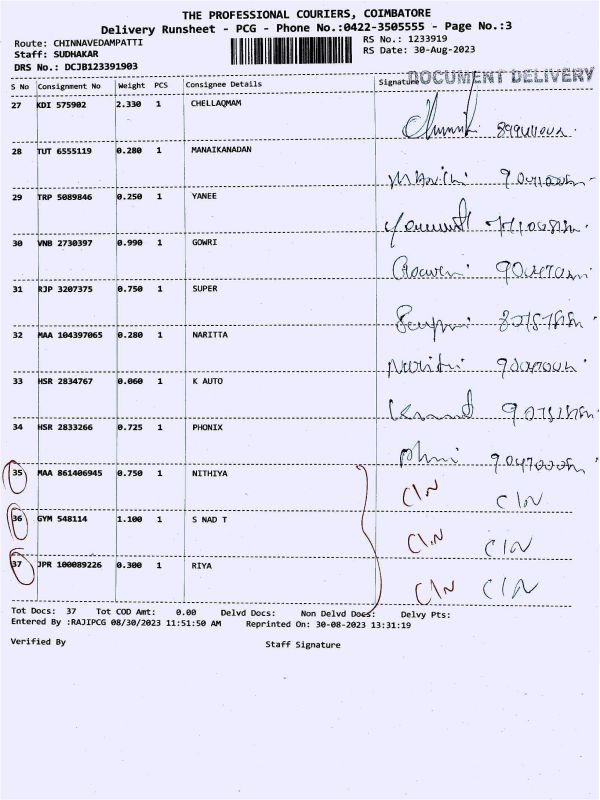 THE PROFESSIONAL COURIERS, COIMBATORE
Delivery Runsheet - PCG - Phone No.:0422-3505555 - Page No.:3
Route: CHINNAVEDAMPATTI
Staff: SUDHAKAR
DRS No.: DCJB123391903
RS No.: 1233919
RS Date: 30-Aug-2023
DOCUMENT DELIVERY
S No Consignment No Weight PCS Consignee Details Signature
27 KDI 575902 2.330 1 CHELLAQMAM
28 TUT 6555119 0.280 1 MANAIKANADAN
29 TRP 5089846 0.250 1 YANEE
30 VNB 2730397 0.990 1 GOWRI
31 RJP 3207375 0.750 1 SUPER
32 MAA 104397065 0.280 1 NARITTA
33 HSR 2834767 0.060 1 K AUTO
34 HSR 2833266 0.725 1 PHONIX
35 MAA 861406945 0.750 1 NITHIYA C/N C/N
36 GYM 548114 1.100 1 S NAD T C/N C/N
37 JPR 100089226 0.300 1 RIYA C/N C/N
Tot Docs: 37 Tot COD Amt: 0.00 Delvd Docs: Non Delvd Docs: Delvy Pts:
Entered By :RAJIPCG 08/30/2023 11:51:50 AM Reprinted On: 30-08-2023 13:31:19
Verified By Staff Signature